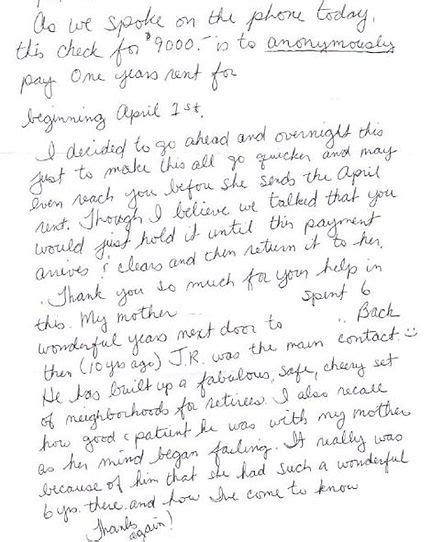 As we spoke on the phone today,
this check for $9000.- is to anonymously
pay One years rent for
beginning April 1st.
I decided to go ahead and overnight this
just to make this all go quicker and may
even reach you before she sends the April
rent. Though I believe we talked that you
would just hold it until this payment
arrives & clears and then return it to her.
Thank you so much for your help in
this. My mother spent 6
wonderful years next door to .. Back
then (10 yrs ago) J.R. was the main contact. :)
He has built up a fabulous, safe, cheery set
of neighborhoods for retirees. I also recall
how good & patient he was with my mother
as her mind began failing. It really was
because of him that she had such a wonderful
6 yrs. there. and how I've come to know
Thanks
again!